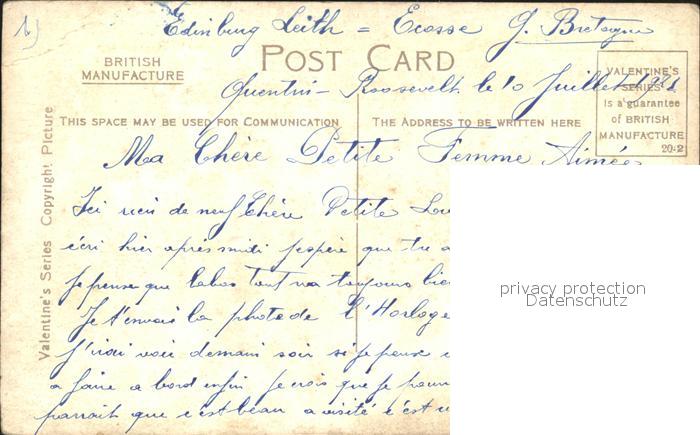 1)
Edinburg Leith = Ecosse G. Bretagne
BRITISH
MANUFACTURE
POST CARD
VALENTINE'S
SERIES
is a guarantee
of BRITISH
MANUFACTURE
20-2
Quentin-Roosevelt le 10 Juillet 1921
THIS SPACE MAY BE USED FOR COMMUNICATION
THE ADDRESS TO BE WRITTEN HERE
Valentine's Series Copyright Picture
Ma Chère Petite Femme Aimée
Ici rien de neuf Chère Petite
écri hier après midi j'espère que tu
je pense que labas tout va toujours bien
Je t'envois la photo de l'Horloge
j'irai voir demain soir si je peux
a faire a bord enfin je crois que je
parrait que c'est beau a visité c'est
privacy protection
Datenschutz